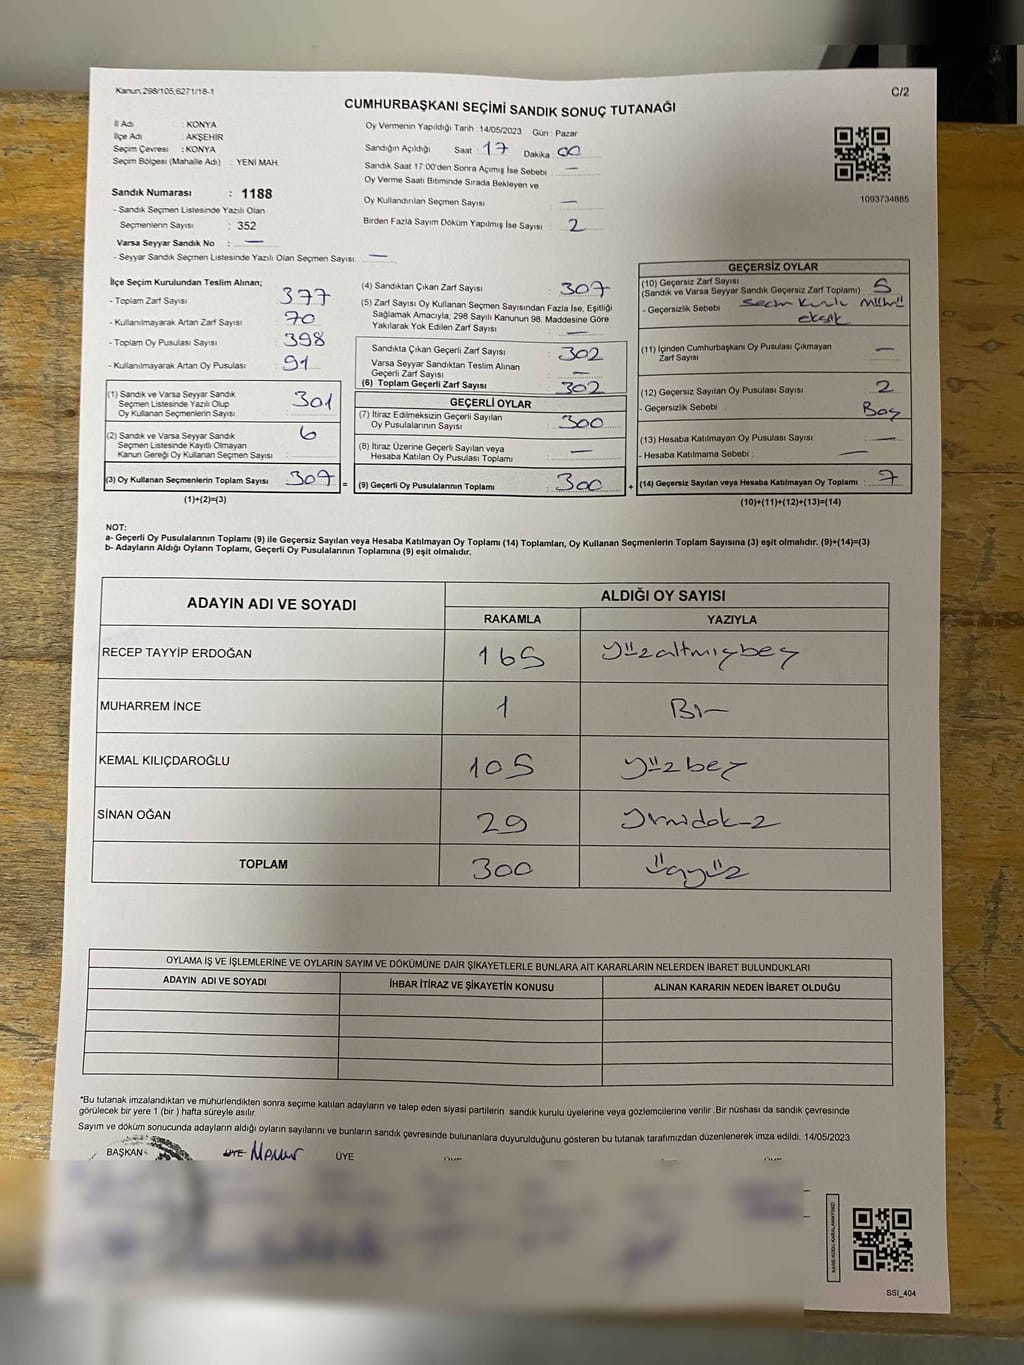 Kanun,298/105,6271/18-1
C/2
CUMHURBAŞKANI SEÇİMİ SANDIK SONUÇ TUTANAĞI
İl Adı : KONYA
İlçe Adı : AKŞEHİR
Seçim Çevresi : KONYA
Seçim Bölgesi (Mahalle Adı) : YENİ MAH.
Sandık Numarası : 1188
- Sandık Seçmen Listesinde Yazılı Olan
Seçmenlerin Sayısı : 352
Varsa Seyyar Sandık No : —
- Seyyar Sandık Seçmen Listesinde Yazılı Olan Seçmen Sayısı: —
Oy Vermenin Yapıldığı Tarih : 14/05/2023 Gün : Pazar
Sandığın Açıldığı Saat : 17 Dakika : 00
Sandık Saat 17:00'den Sonra Açımış İse Sebebi : —
Oy Verme Saati Bitiminde Sırada Bekleyen ve
Oy Kullandırılan Seçmen Sayısı : —
Birden Fazla Sayım Döküm Yapılmış İse Sayısı : 2
1093734885
İlçe Seçim Kurulundan Teslim Alınan;
- Toplam Zarf Sayısı : 377
- Kullanılmayarak Artan Zarf Sayısı : 70
- Toplam Oy Pusulası Sayısı : 398
- Kullanılmayarak Artan Oy Pusulası : 91
(1) Sandık ve Varsa Seyyar Sandık
Seçmen Listesinde Yazılı Olup
Oy Kullanan Seçmenlerin Sayısı : 301
(2) Sandık ve Varsa Seyyar Sandık
Seçmen Listesinde Kayıtlı Olmayan
Kanun Gereği Oy Kullanan Seçmen Sayısı : 6
(3) Oy Kullanan Seçmenlerin Toplam Sayısı : 307
(1)+(2)=(3)
(4) Sandıktan Çıkan Zarf Sayısı : 307
(5) Zarf Sayısı Oy Kullanan Seçmen Sayısından Fazla İse, Eşitliği
Sağlamak Amacıyla; 298 Sayılı Kanunun 98. Maddesine Göre
Yakılarak Yok Edilen Zarf Sayısı : —
Sandıkta Çıkan Geçerli Zarf Sayısı : 302
Varsa Seyyar Sandıktan Teslim Alınan
Geçerli Zarf Sayısı : —
(6) Toplam Geçerli Zarf Sayısı : 302
GEÇERLİ OYLAR
(7) İtiraz Edilmeksizin Geçerli Sayılan
Oy Pusulalarının Sayısı : 300
(8) İtiraz Üzerine Geçerli Sayılan veya
Hesaba Katılan Oy Pusulası Toplamı : —
= (9) Geçerli Oy Pusulalarının Toplamı : 300
GEÇERSİZ OYLAR
(10) Geçersiz Zarf Sayısı
(Sandık ve Varsa Seyyar Sandık Geçersiz Zarf Toplamı) : 5
- Geçersizlik Sebebi : Seçim kurulu mührü
eksik
(11) İçinden Cumhurbaşkanı Oy Pusulası Çıkmayan
Zarf Sayısı : —
(12) Geçersiz Sayılan Oy Pusulası Sayısı : 2
- Geçersizlik Sebebi : Boş
(13) Hesaba Katılmayan Oy Pusulası Sayısı : —
- Hesaba Katılmama Sebebi : —
+ (14) Geçersiz Sayılan veya Hesaba Katılmayan Oy Toplamı : 7
(10)+(11)+(12)+(13)=(14)
NOT:
a- Geçerli Oy Pusulalarının Toplamı (9) ile Geçersiz Sayılan veya Hesaba Katılmayan Oy Toplamı (14) Toplamları, Oy Kullanan Seçmenlerin Toplam Sayısına (3) eşit olmalıdır. (9)+(14)=(3)
b- Adayların Aldığı Oyların Toplamı, Geçerli Oy Pusulalarının Toplamına (9) eşit olmalıdır.
ADAYIN ADI VE SOYADI ALDIĞI OY SAYISI
RAKAMLA YAZIYLA
RECEP TAYYİP ERDOĞAN 165 yüzaltmışbeş
MUHARREM İNCE 1 Bir
KEMAL KILIÇDAROĞLU 105 yüzbeş
SİNAN OĞAN 29 Yirmidokuz
TOPLAM 300 üçyüz
OYLAMA İŞ VE İŞLEMLERİNE VE OYLARIN SAYIM VE DÖKÜMÜNE DAİR ŞİKAYETLERLE BUNLARA AİT KARARLARIN NELERDEN İBARET BULUNDUKLARI
ADAYIN ADI VE SOYADI İHBAR İTİRAZ VE ŞİKAYETİN KONUSU ALINAN KARARIN NEDEN İBARET OLDUĞU
*Bu tutanak imzalandıktan ve mühürlendikten sonra seçime katılan adayların ve talep eden siyasi partilerin sandık kurulu üyelerine veya gözlemcilerine verilir .Bir nüshası da sandık çevresinde
görülecek bir yere 1 (bir ) hafta süreyle asılır.
Sayım ve döküm sonucunda adayların aldığı oyların sayılarını ve bunların sandık çevresinde bulunanlara duyurulduğunu gösteren bu tutanak tarafımızdan düzenlenerek imza edildi. 14/05/2023
BAŞKAN ÜYE Memur ÜYE
KARE KODU KARALAMAYINIZ!
SSI_404